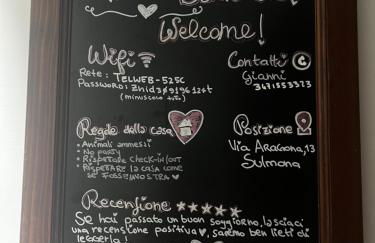 Welcome!
Wifi
Rete: TELWEB-525C
(minuscolo tutto)
Contatti
Gianni
3471553323
Regole della casa
• Animali ammessi
• No party
• Rispettare check-in/out
• Rispettare la casa come
se fosse vostra
Posizione
Via Aragona, 13
Sulmona
Recensione
Se hai passato un buon soggiorno, lasciaci
una recensione positiva, saremo ben lieti di
leggerla!